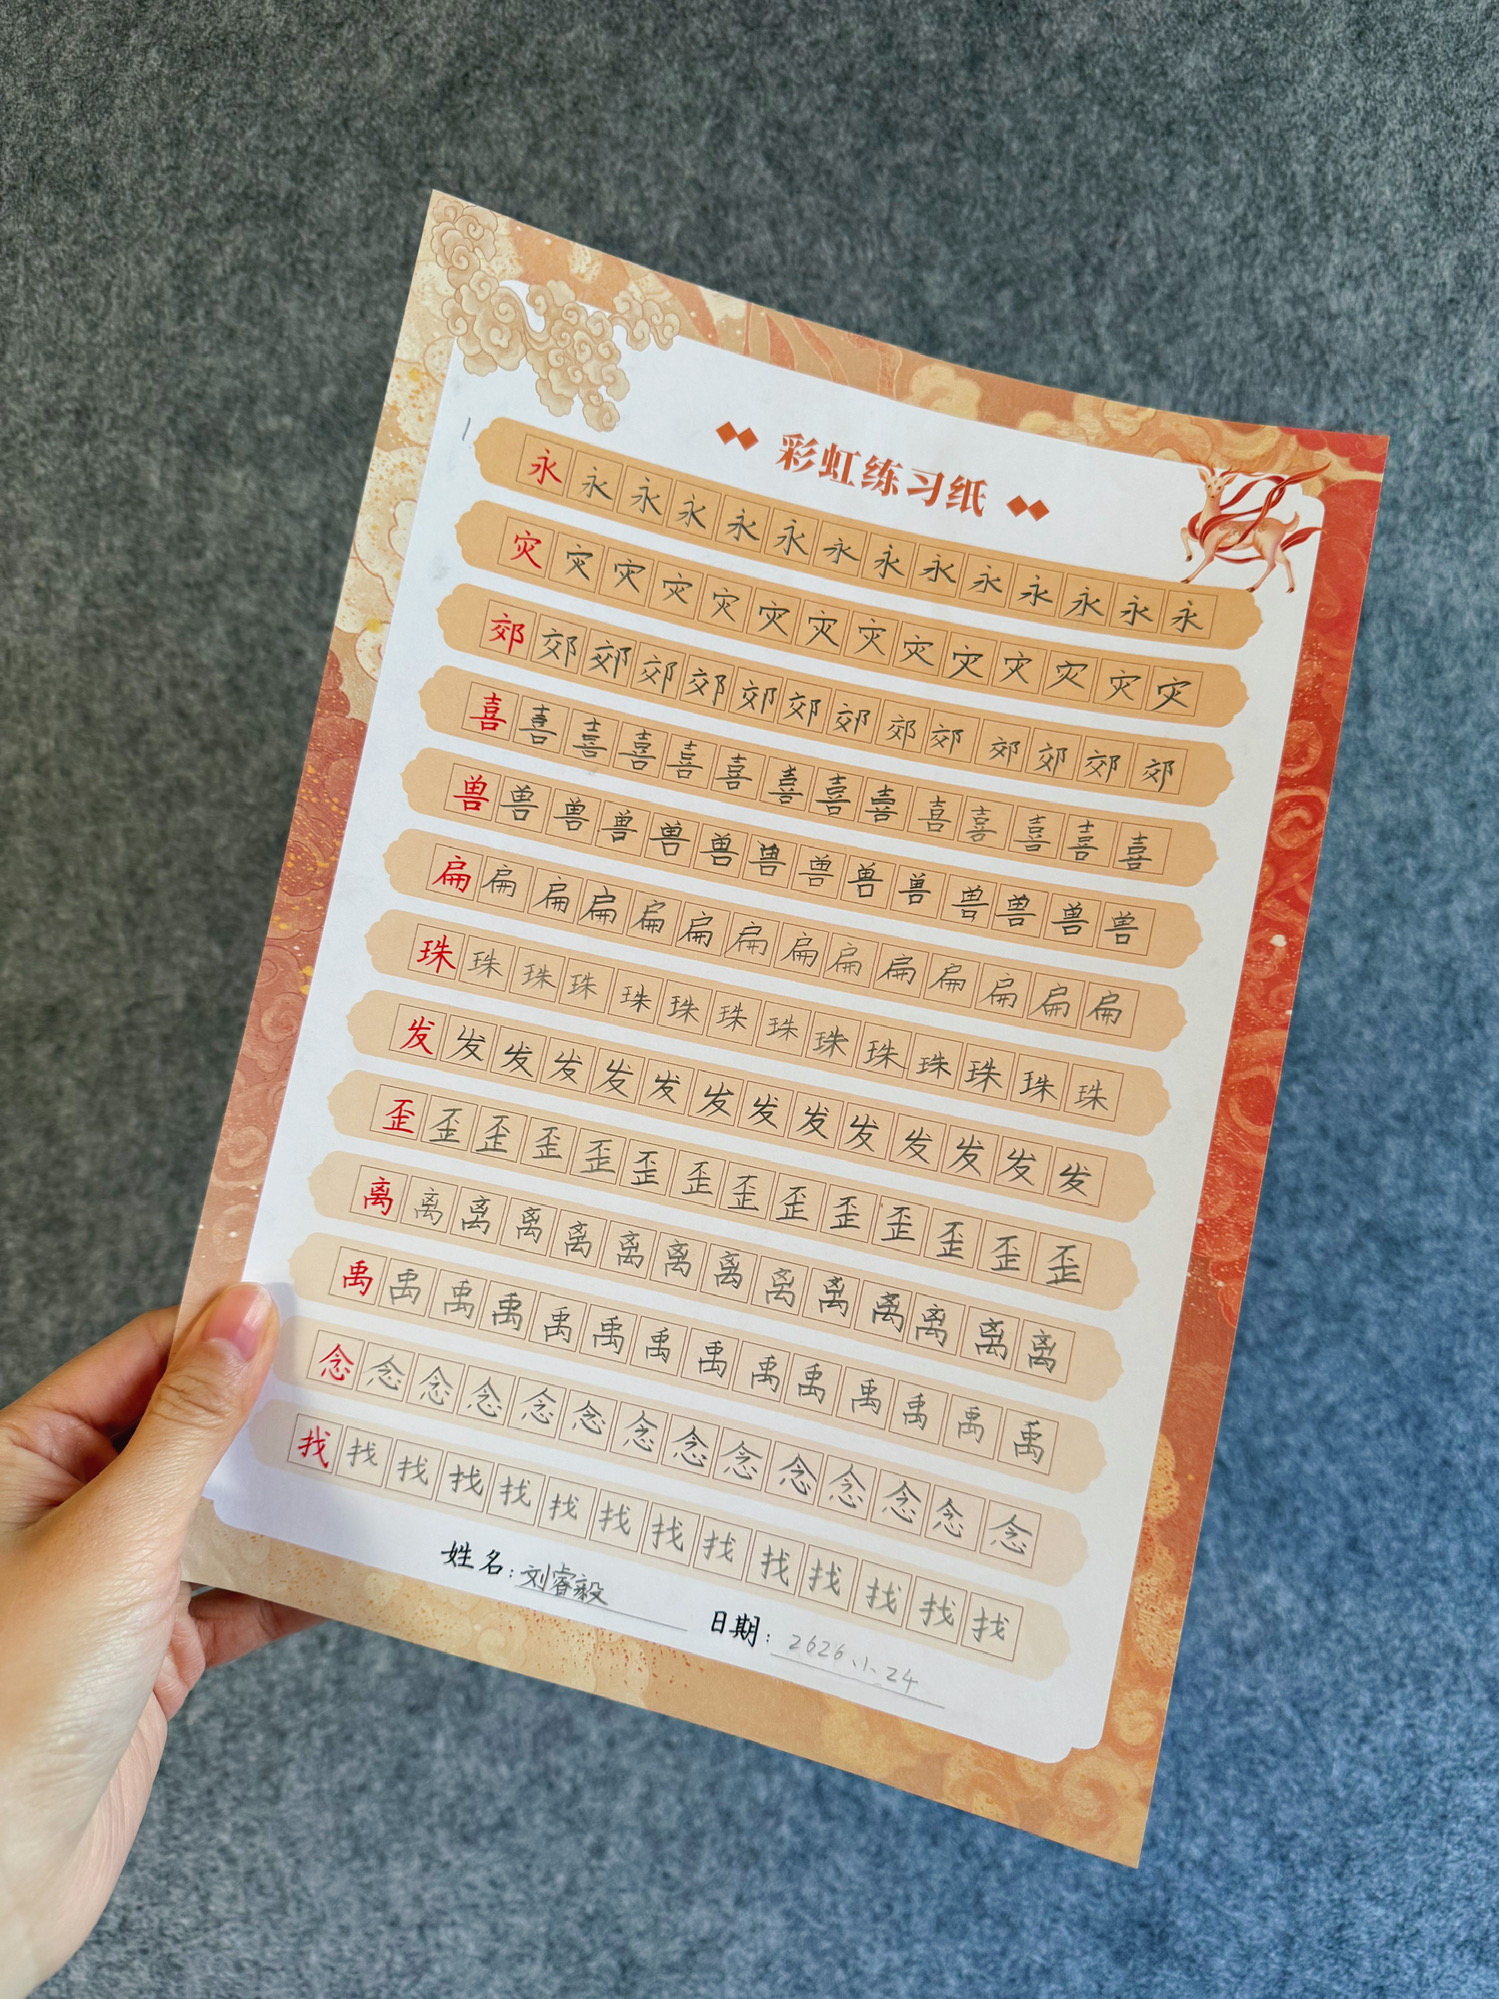 彩虹练习纸
永永永永永永永永永永永永永永
灾灾灾灾灾灾灾灾灾灾灾灾灾灾
郊郊郊郊郊郊郊郊郊郊郊郊郊郊
喜喜喜喜喜喜喜喜喜喜喜喜喜喜
兽兽兽兽兽兽兽兽兽兽兽兽兽兽
扁扁扁扁扁扁扁扁扁扁扁扁扁扁
珠珠珠珠珠珠珠珠珠珠珠珠珠珠
发发发发发发发发发发发发发发
歪歪歪歪歪歪歪歪歪歪歪歪歪歪
离离离离离离离离离离离离离离
禹禹禹禹禹禹禹禹禹禹禹禹禹禹
念念念念念念念念念念念念念念
找找找找找找找找找找找找找找
姓名:刘睿毅 日期:2626.1.24